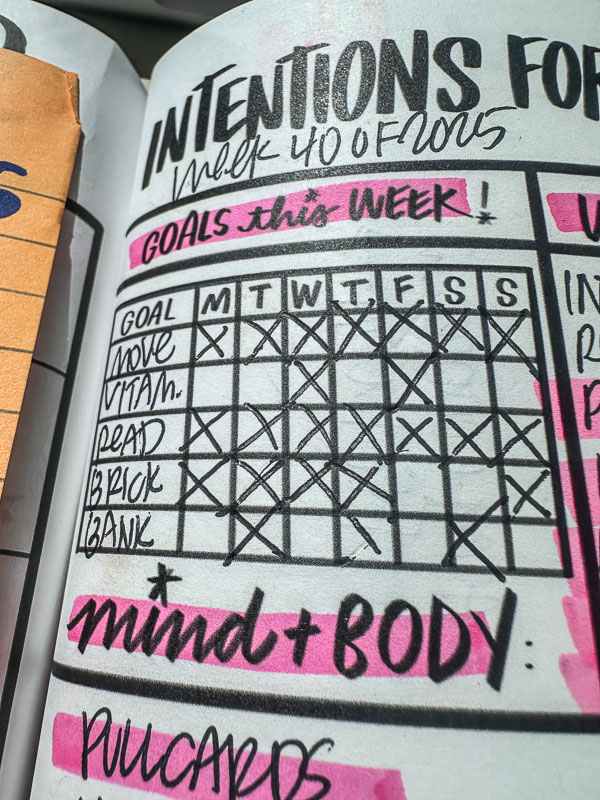 INTENTIONS FOR
Week 40 OF 2025
GOALS this WEEK!
GOAL M T W T F S S
MOVE X X X X X X X
VITAM. X X
READ X X X X X X X
BRICK X X X X X
BANK X X X
mind + BODY:
PULL CARDS